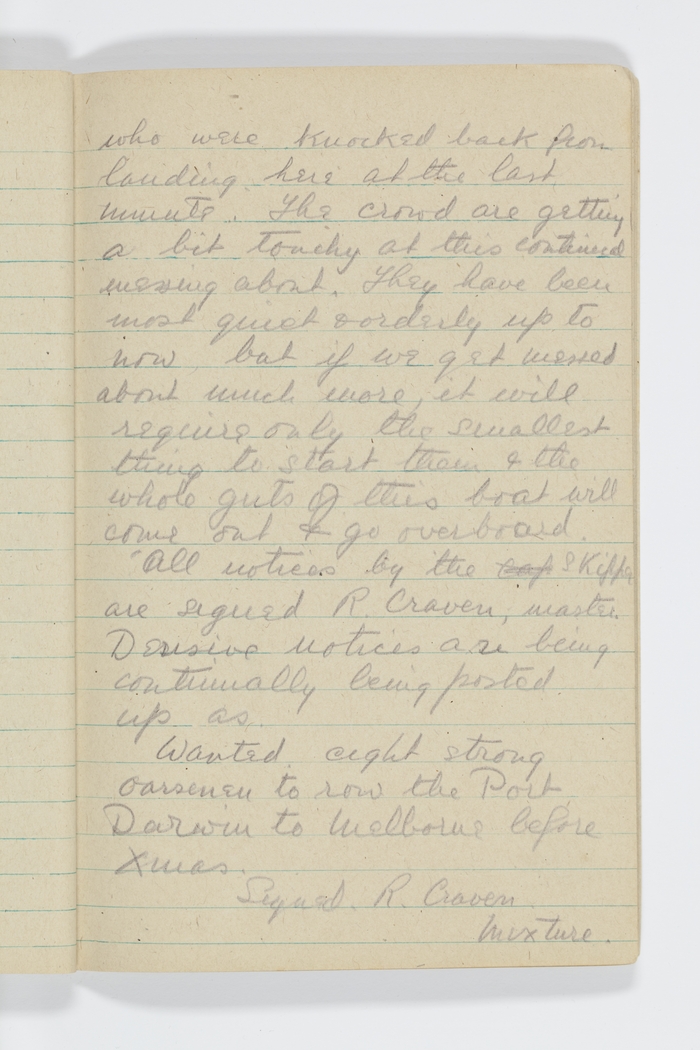 who were knocked back from
landing here at the last
minute. The crowd are getting
a bit touchy at this continued
messing about. They have been
most quiet & orderly up to
now, but if we get messed
about much more, it will
require only the smallest
thing to start them & the
whole guts of this boat will
come out & go overboard.
All notices by the cap Skipper
are signed R. Craven, master.
Derisive notices are being
continually being posted
up as
Wanted eight strong
oarsmen to row the Port
Darwin to Melborne before
Xmas.
Signed. R. Craven.
Mixture.